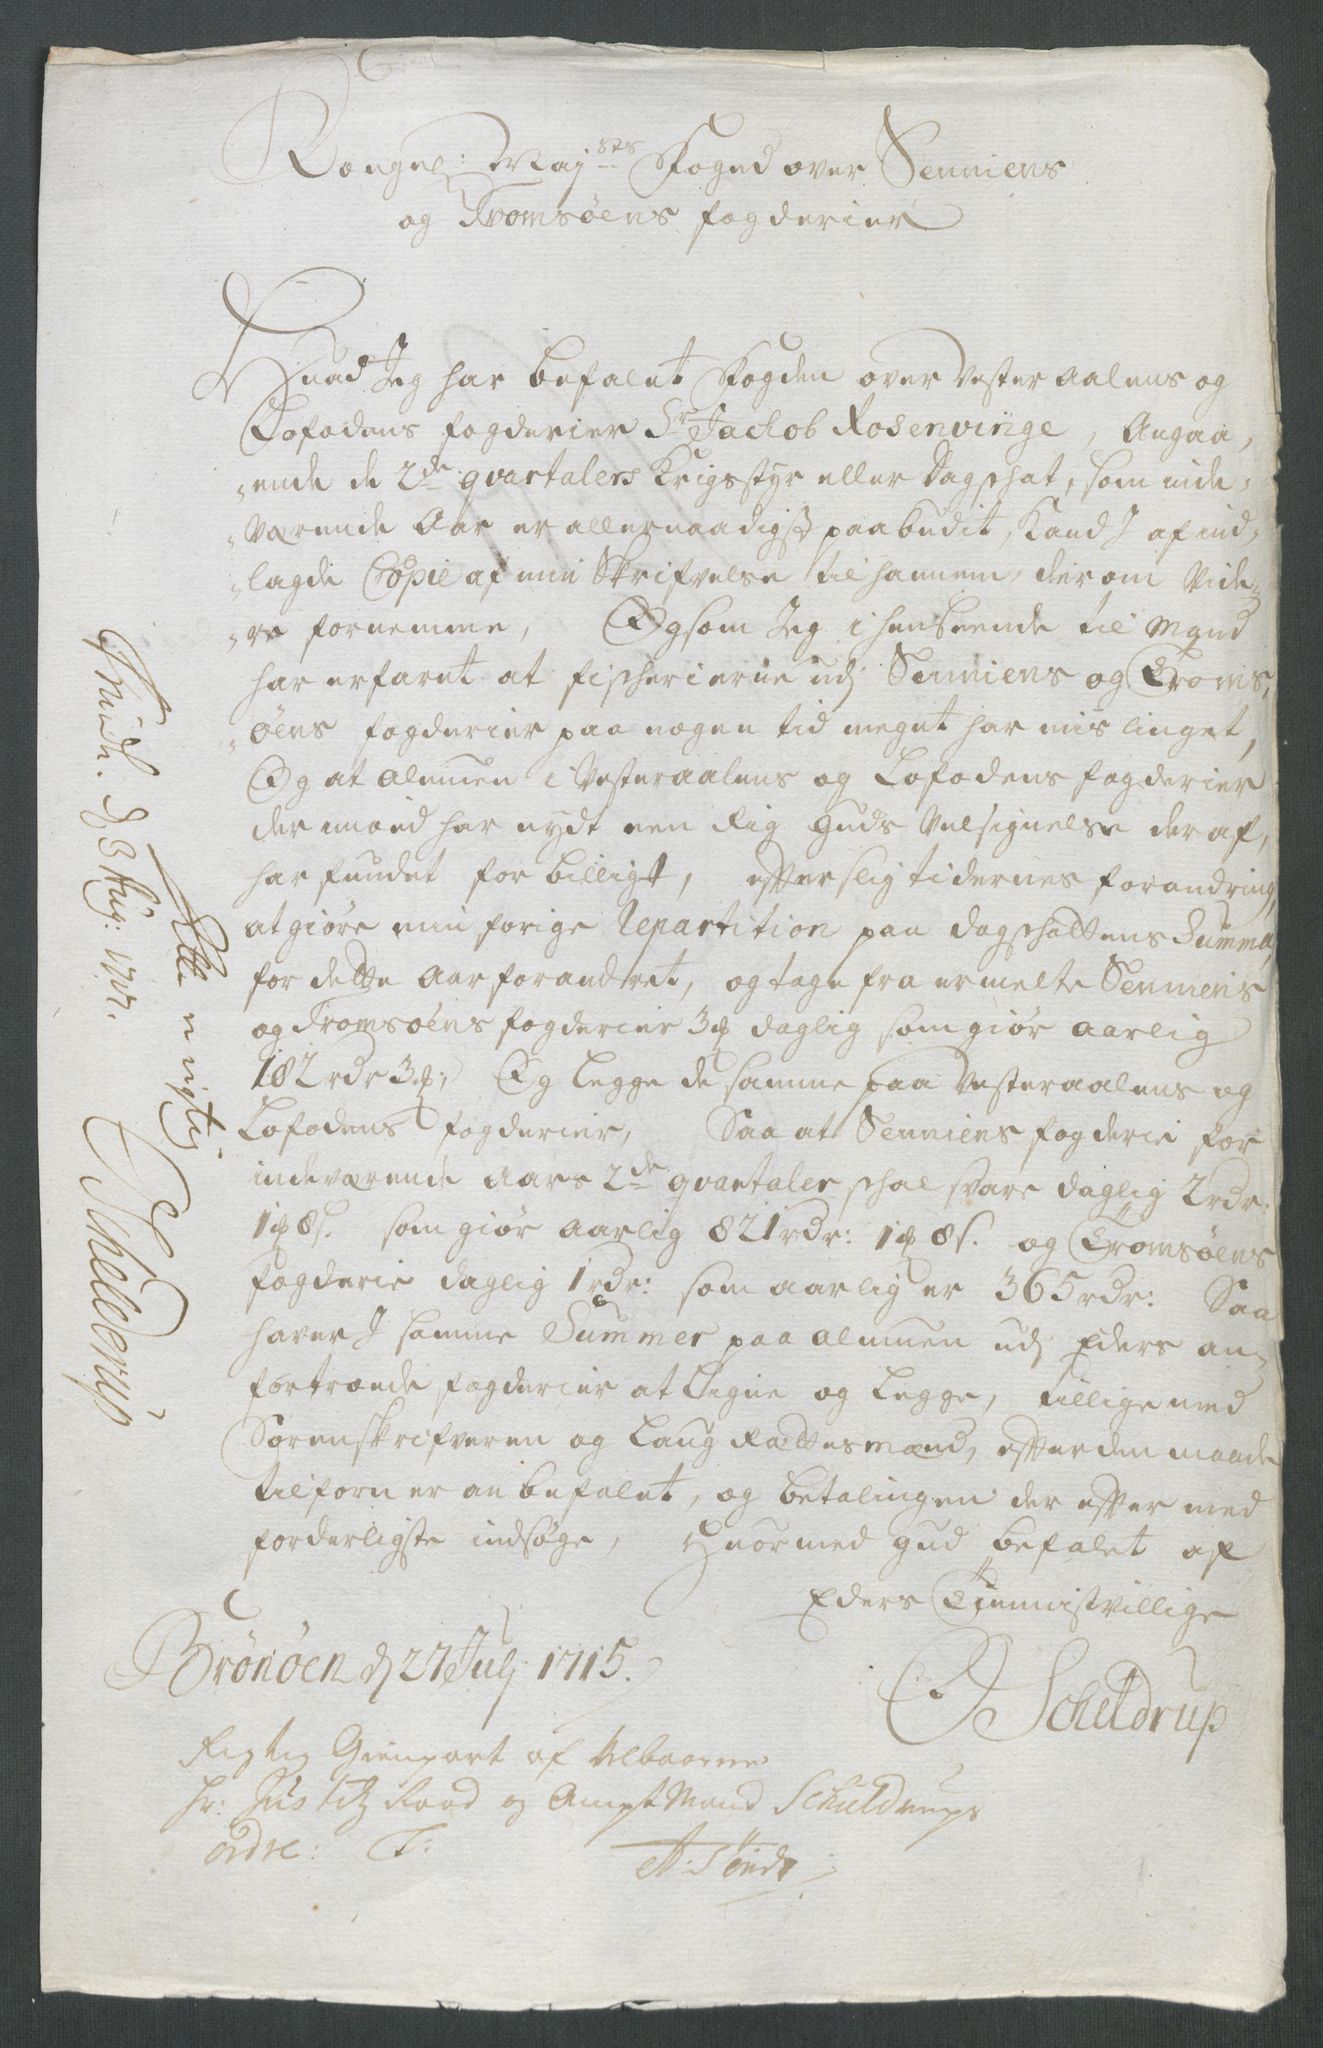 Kongel: Maÿ:sts Foged over Senniens
og Tromsöens fogderier
Hvad Jeg har befalet Fogden over Vesteraalens og
Lofodens fogderier Sr Jachob Rosenvinge, Angaa,
ende de 2de qvartalers Krigsstyr eller Dagschat, som inde,
værende Aar er allernaadigst paabudit, Kand I af ind,
lagde Copie af min Skrifvelse til hannem, derom vide,
re fornemme, Og som Jeg i henseende til
har erfaret at fischerierne udj Senniens og Troms,
öens fogderier paa nogen tid meget har mislinget,
Og at almuen i Vesteraalens og Lofodens fogderier
derimoed har nydt een Rig Guds Velsignelse deraf,
har fundet for billigt, effter slig tidernes forandring,
at giöre min forige Repartition paa dagschattens Summa,
for dette Aar forandret, og tage fra ermelte Senniens
og Tromsöens fogderier 3 ƶ daglig som giör aarlig
182 rdr 3 ƶ, Og legge de samme paa Vesteraalens og
Lofodens fogderier, Saa at Senniens fogderie for
indeværende Aars 2de qvartaler schal svare daglig 2 rdr:
1 ƶ 8 s. som giör aarlig 821 rdr: 1 ƶ 8 s. og Tromsöens
fogderie daglig 1 rdr: som aarlig er 365 rdr: Saa
haver I samme Summer paa almuen udj Eders an,
fortroede fogderier at ligne og legge, tillige med
Sorenskrifveren og Laug Rættesmænd, effter den maade
tilforn er anbefalet, og betalingen der effter med
forderligste indsöge, Hvormed Gud befalet af
Eders Tienistvillige
Brönöen d 27 Julj 1715.
O Scheldrup
Rigtig Gienpart af Velbaarne
Hr: Justitz Raad og Ampt Mand Scheldrups
ordre: T:
A: Tönder
d 8 Aug: 1717.
Rette rigtig
O Schelderup